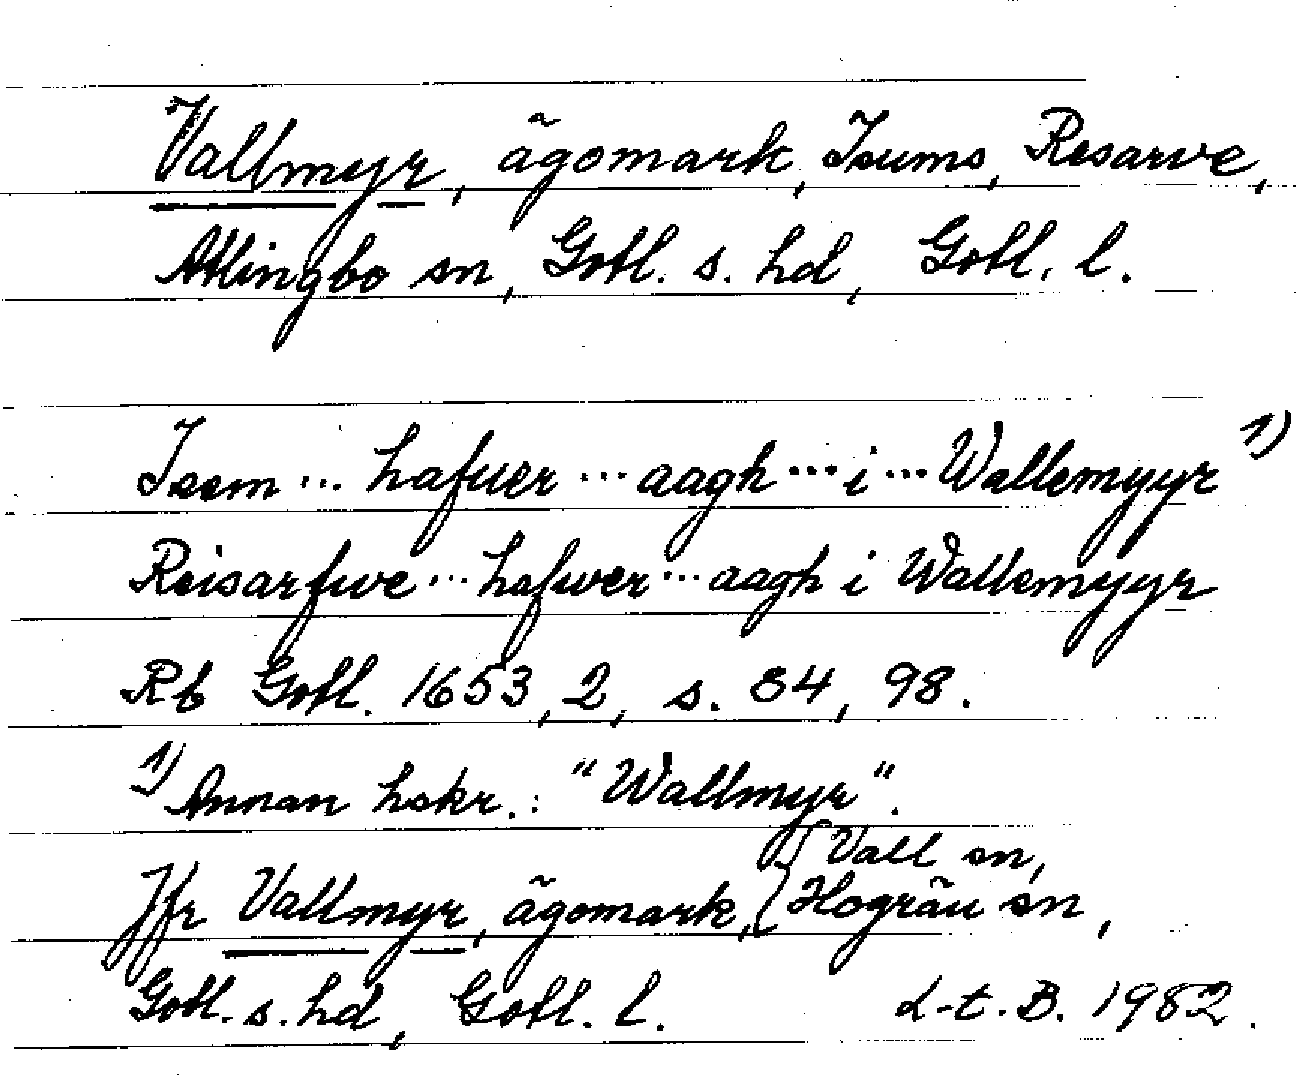 Vallmyr, ägomark, Isums, Resarve,
Atlingbo sn, Gotl. s. hd, Gotl. l.
Isem ... hafuer ... aagh ... i ... Wallemyyr 1)
Reisarfwe ... hafwer ... aagh i Wallemyyr
Rb Gotl. 1653, 2, s. 84, 98.
1) Annan hskr.: "Wallmyr".
Jfr Vallmyr, ägomark, { Vall sn,
Hogrän sn,
Gotl. s. hd, Gotl. l. L-t. B. 1982.